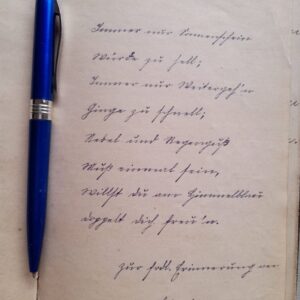 Immer nur Sonnenschein
Würde zu hell;
Immer nur Weitergeh'n
Ginge zu schnell;
Nebel und Regenguß
Muß einmal sein,
Willst du am Himmelblau
doppelt dich freu'n.
Zur frdl. Erinnerung an